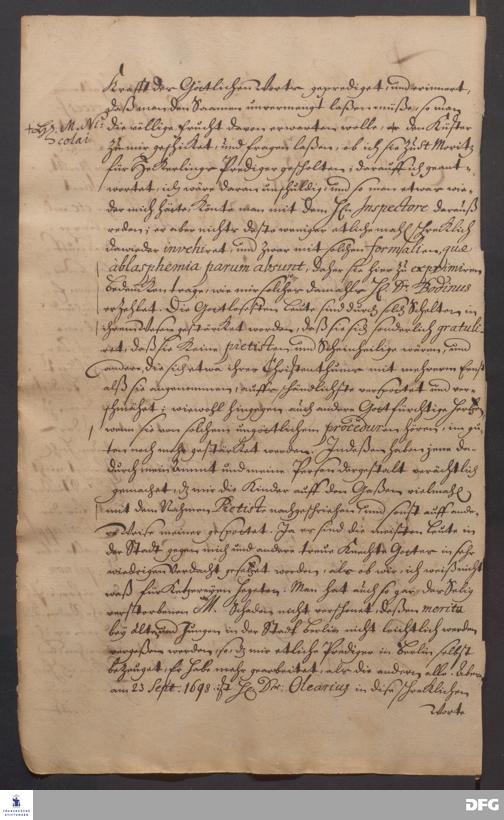 Krafft der Göttlichen Worte geprediget, und erinnert,
daß man den Saamen unvermengt laßen müße, so man
die völlige Frucht davon erwarten wolle, den Küster
+ H. M. Ni-
colai
zu mir geschicket, und fragen laßen, ob ich sie zu St Moritz
für Prediger gescholten; darauff ich geant-
wortet, ich wäre daran unschuldig, und so man etwas wie-
der mich hätte, könte man mit dem H. Inspectore daraus
reden; er aber nichts desto weniger etliche mahl schrecklich
dawieder invehiret und zwar mit solchen formalien, quæ
à blasphemia parum absunt, daher sie hier zu exprimiren
bedencken trage, wie mir solches damahls H. Dr Bodinus
erzehlet. Die Gottlosesten Leute sind durch solch Schelten in
ihrem Wesen gestärcket worden, daß sie sich sonderlich gratuli-
ret, daß sie keine pietisten und Scheinheilige wären, und
andere, die sich etwa ihres Christenthums mit mehrerm Ernst
alß sie angenommen, auffs schändlichste verspottet und ver-
schmähet; wiewohl hingegen auch andere Gottsfürchtige Hertzen
wenn sie von solchem ungöttlichem proceduren hören, im gu-
ten noch mehr gestärcket werden. Indeßen haben jene da-
durch mein Ammt und meine Person dergestalt verächtlich
gemachet, daß mir die Kinder auff den Gaßen vielmahls
mit dem Nahmen Pietist nachgeschriehen, und sonst auff ande-
re Weise meiner gespottet. Ja es sind die meisten Leute in
der Stadt gegen mich und andere treue Knechte Gottes in sehr
wiedrigen Verdacht gesetzet worden, als ob wir, ich weiß nicht
waß für Ketzereyen hegeten. Man hat auch so gar, des Selig
verstorbenen M. Schaden nicht verschonet, deßen merita
bey Alten und Jungen in der Stadt Berlin nicht leichtlich werden
vergeßen werden, so, daß mir etliche Prediger in Berlin selbst
bezeuget, Er habe mehr gearbeitet, als die andern alle.
am 23 Sept. 1698 ist H. Dr. Olearius in diese schrecklichen
Worte
FRANCKESCHE
STIFTUNGEN
DFG